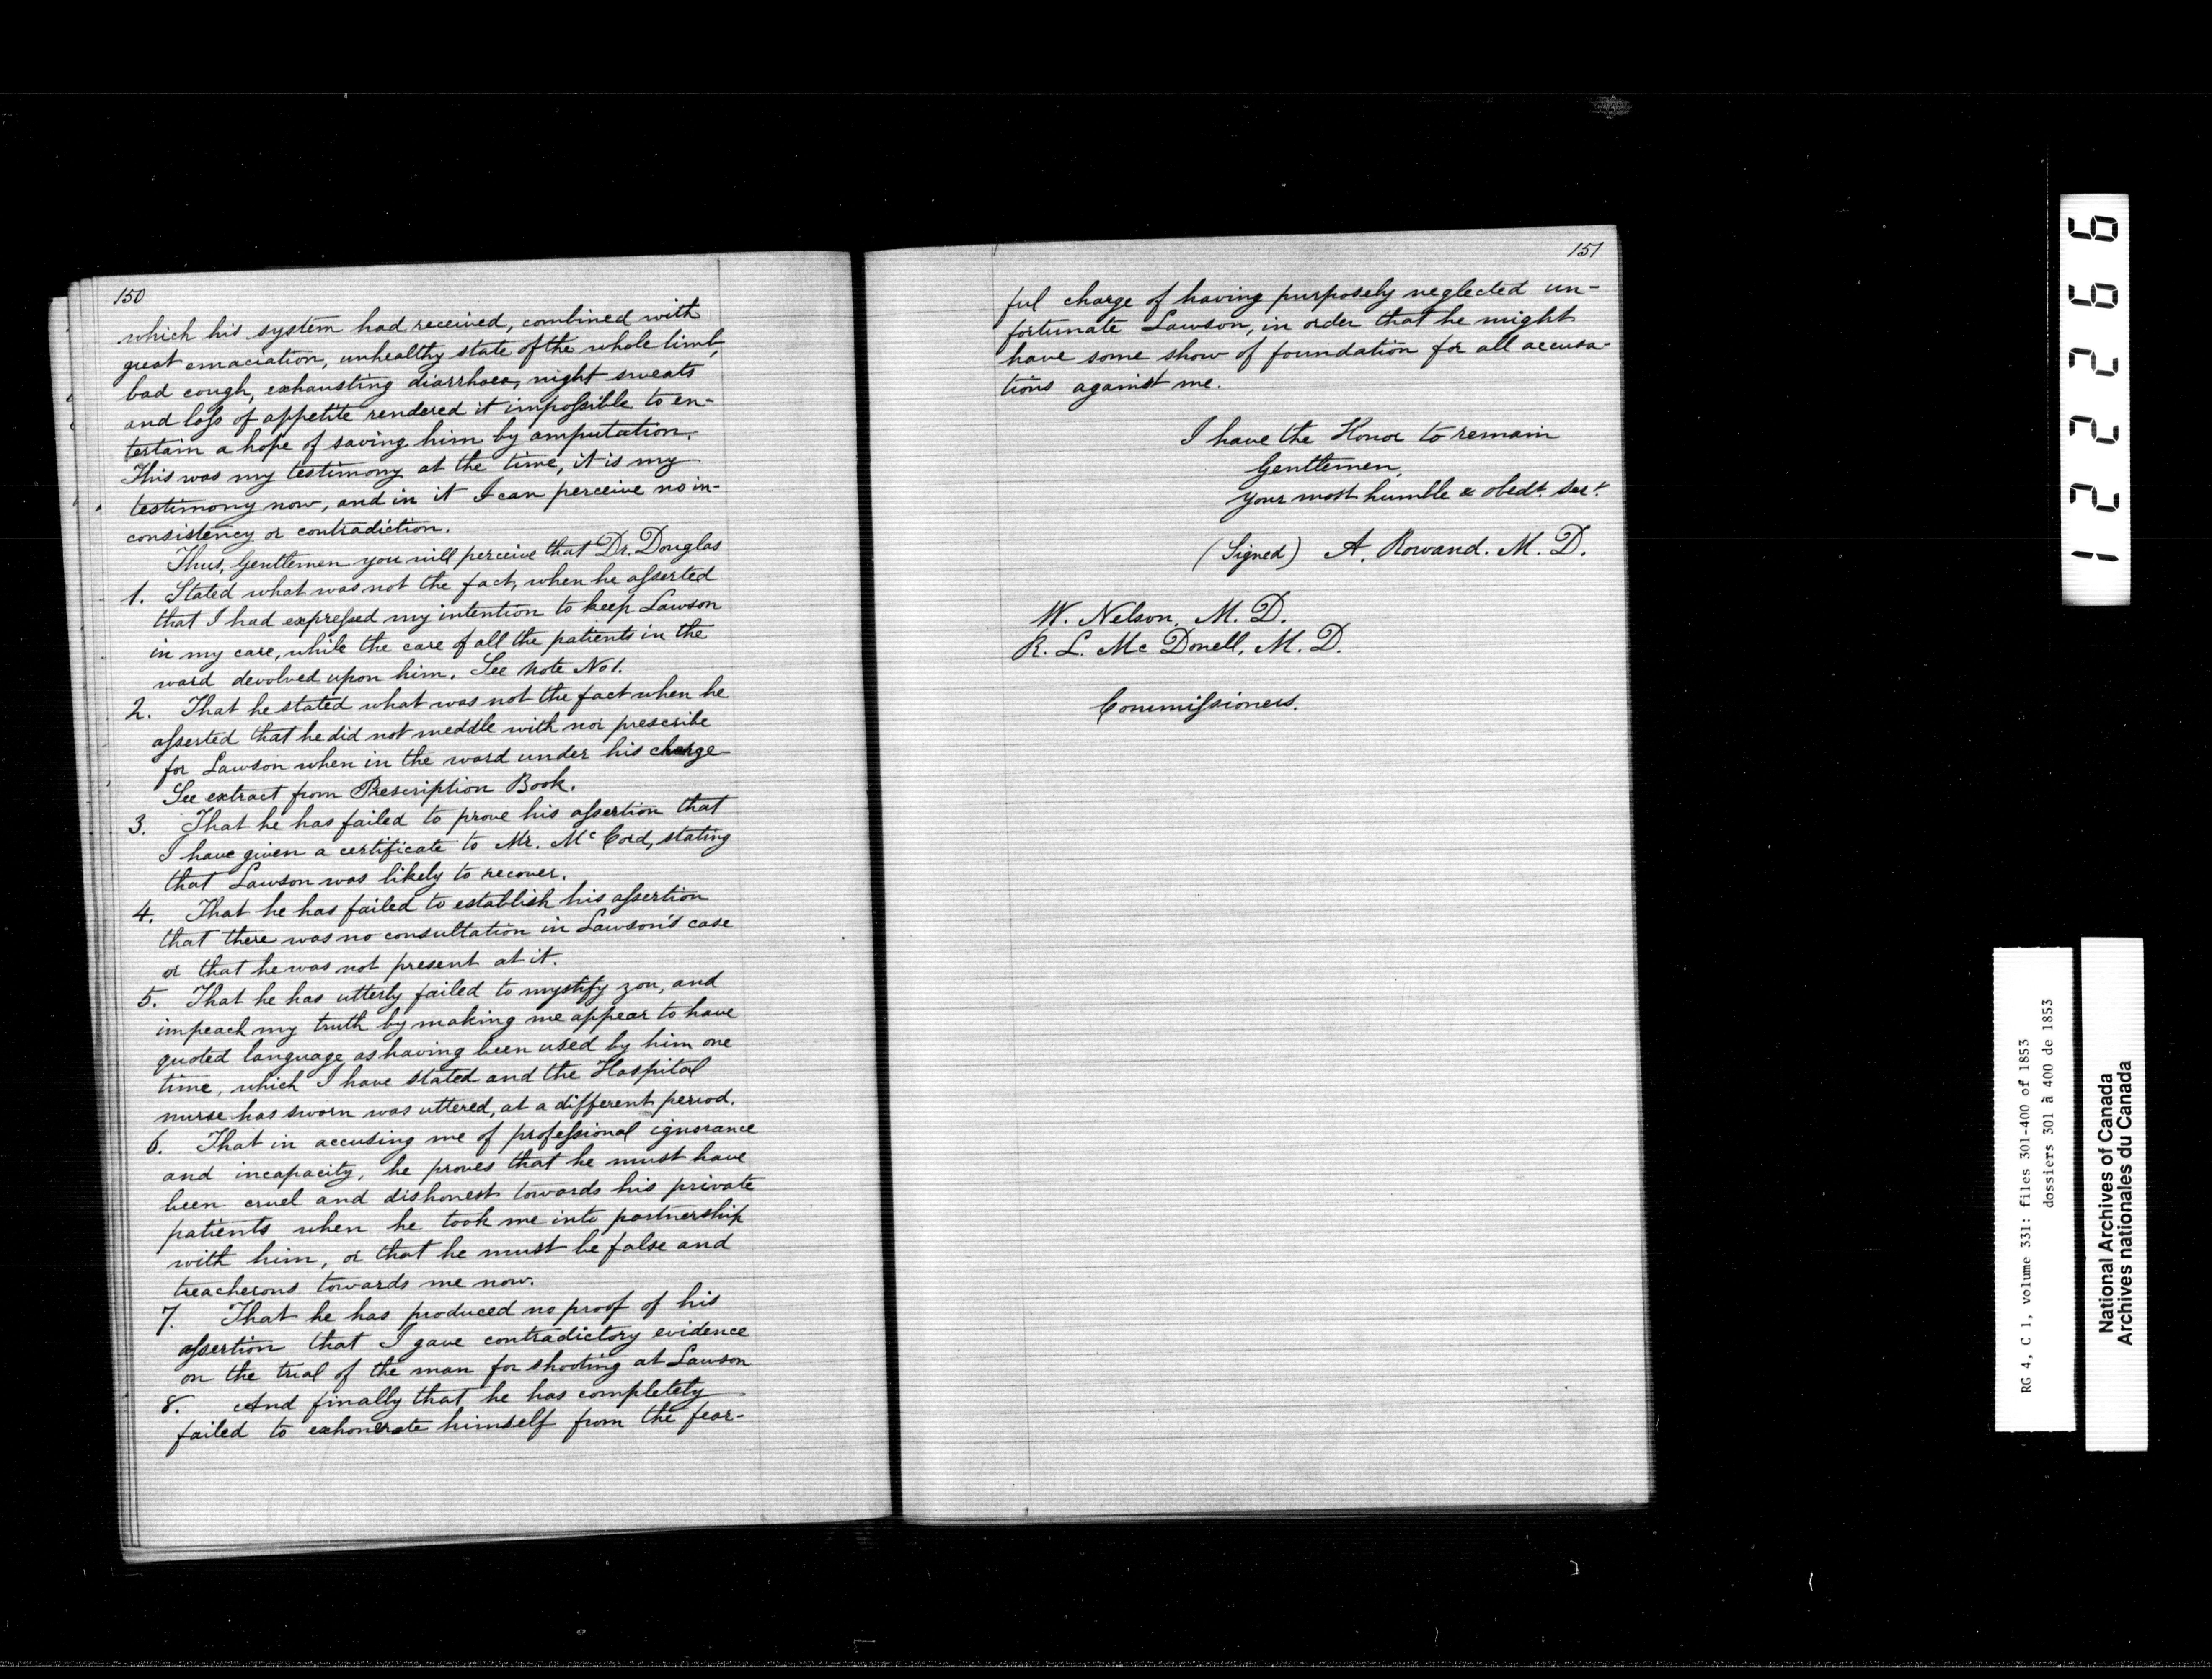 150
which his system had received, combined with
great emaciation, unhealthy state of the whole limb,
bad cough, exhausting diarrhoea, night sweats
and loss of appetite rendered it impossible to en-
tertain a hope of saving him by amputation.
This was my testimony at the time, it is my
testimony now, and in it I can perceive no in-
consistency or contradiction.
Thus, Gentlemen you will perceive that Dr. Douglas
1. Stated what was not the fact, when he asserted
that I had expressed my intention to keep Lawson
in my care, while the care of all the patients in the
ward devolved upon him. See Note No 1.
2. That he stated what was not the fact when he
asserted that he did not meddle with nor prescribe
for Lawson when in the ward under his charge
See extract from Prescription Book.
3. That he has failed to prove his assertion that
I have given a certificate to Mr. McCord, stating
that Lawson was likely to recover.
4. That he has failed to establish his assertion
that there was no consultation in Lawson's case
or that he was not present at it.
5. That he has utterly failed to mystify you, and
impeach my truth by making me appear to have
quoted language as having been used by him one
time, which I have stated and the Hospital
nurse has sworn was uttered, at a different period.
6. That in accusing me of professional ignorance
and incapacity, he proves that he must have
been cruel and dishonest towards his private
patients when he took me into partnership
with him, or that he must be false and
treacherous towards me now.
7. That he has produced no proof of his
assertion that I gave contradictory evidence
on the trial of the man for shooting at Lawson
8. And finally that he has completely
failed to exhonerate himself from the fear-
151
ful charge of having purposely neglected un-
fortunate Lawson, in order that he might
have some show of foundation for all accusa-
tions against me.
I have the Honor to remain
Gentlemen,
your most humble & obedt. sert.
(Signed) A. Rowand. M. D.
W. Nelson, M. D.
R. L. Mc Donell, M. D.
Commissioners.
122266
RG 4, C 1, volume 331: files 301-400 of 1853
dossiers 301 à 400 de 1853
National Archives of Canada
Archives nationales du Canada